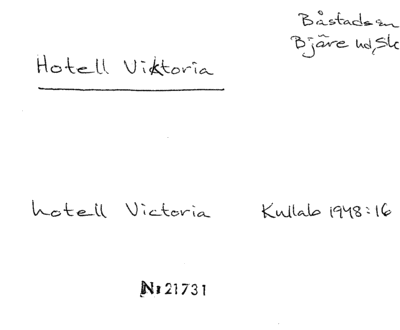 Båstads sn
Bjäre hd, Sk
Hotell Viktoria
hotell Victoria Kullab 1948:16
Nr 21731